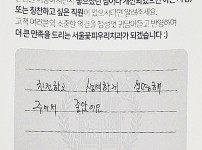 또는 칭찬하고 싶은 직원이 있으시다면 알려주세요.
고객 여러분의 소중한 의견을 항상 귀담아듣고 반영하여
더 큰 만족을 드리는 서울꽃피우리치과가 되겠습니다 :)
친절하고 섬세하게 설명해
주셔서 좋았어요